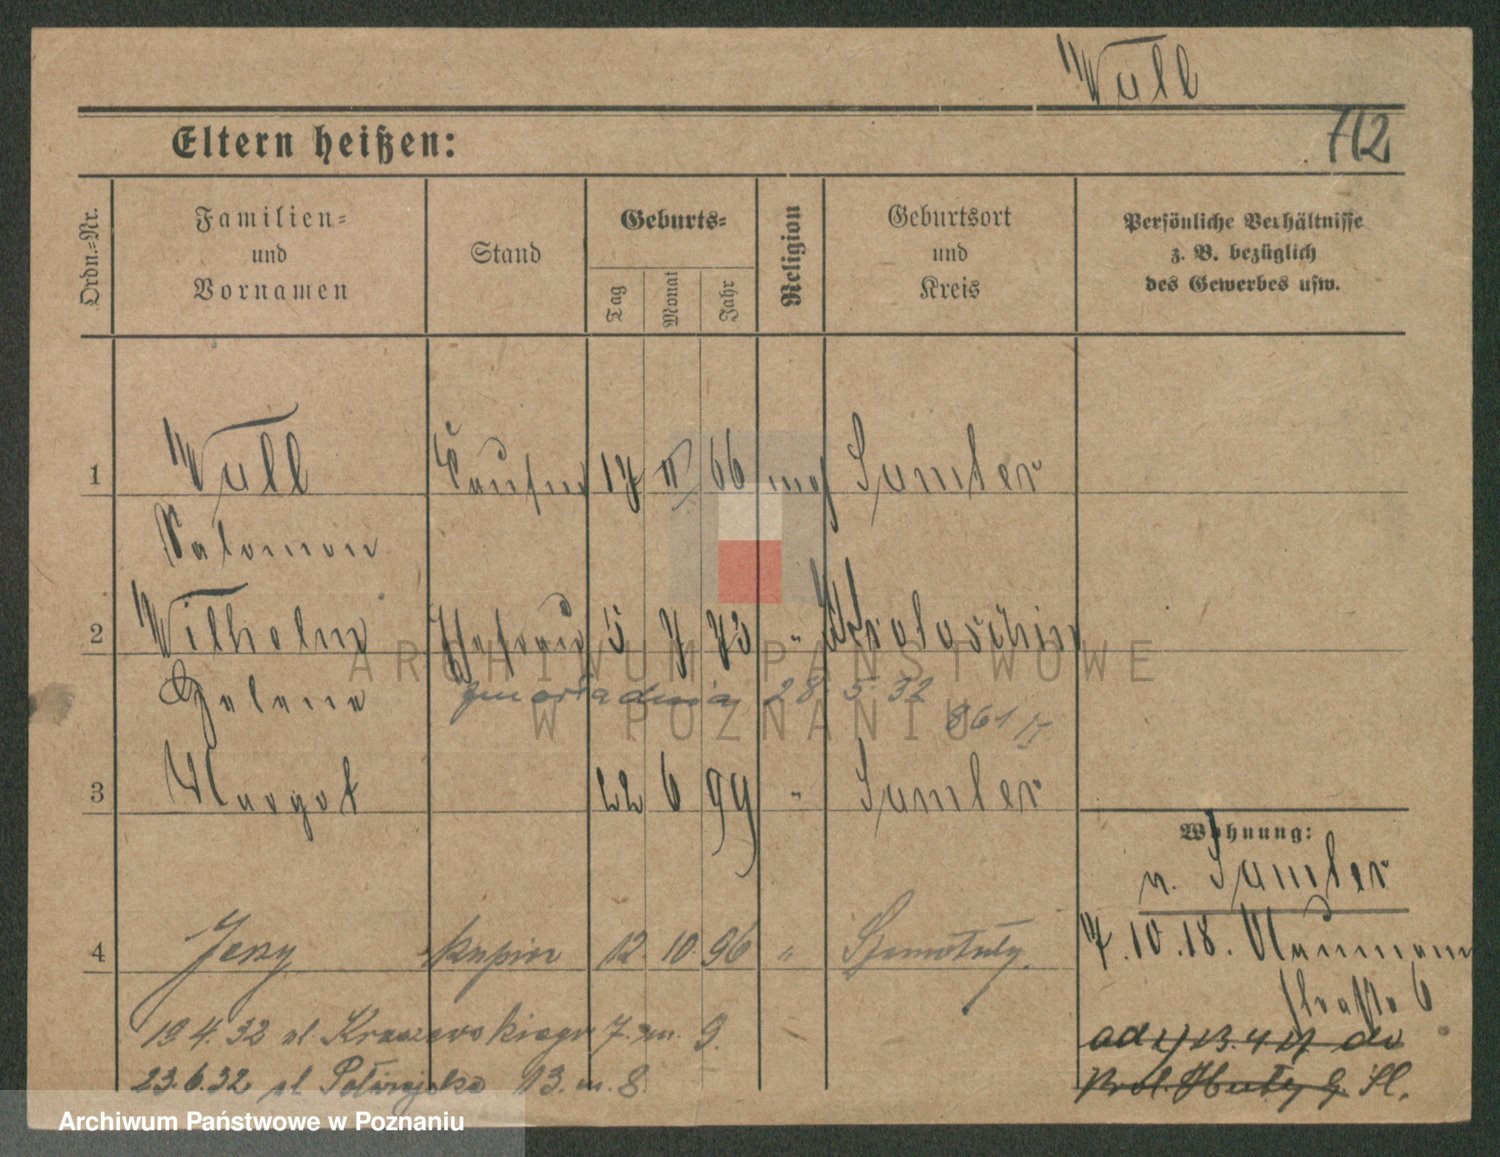 Wull
712
Eltern heißen:
Ordn.-Nr.
Familien- und Vornamen
Stand
Geburts-
Tag
Monat
Jahr
Religion
Geburtsort und Kreis
Persönliche Verhältnisse z. B. bezüglich des Gewerbes usw.
1 Wull 17 II 66 mos Samter
Salomon
2 Wilhelm Ehefrau 5 7 73 " Krotoschin
Helene
28.5.32
861
3 Margot 22 6 99 " Samter
Wohnung:
v. Samter
4 Jerzy kupiec 12. 10. 96 " Szamotuły
7.10.18. Naumann
straße 6
19.4.32 ul. Kraszewskiego 7. m. 9.
23.6.32 ul. 13. m. 8.
ARCHIWUM PAŃSTWOWE
W POZNANIU
Archiwum Państwowe w Poznaniu